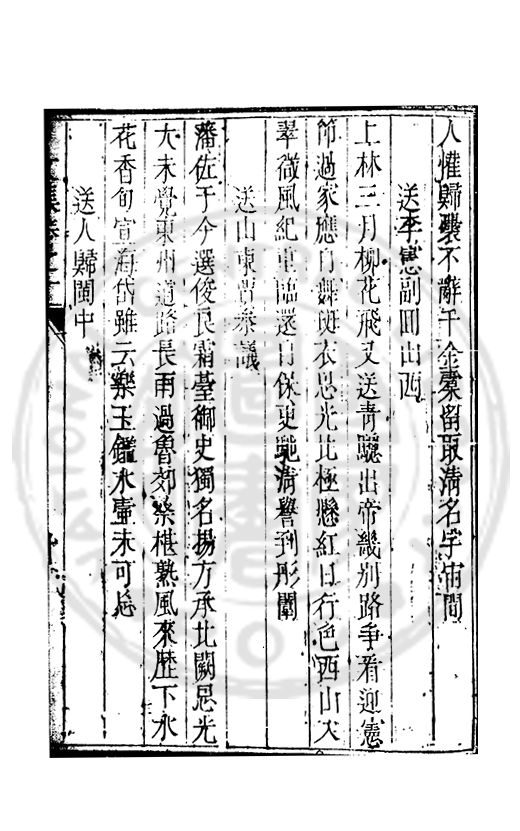 人惟歸裝不辭千金橐留取清名宇宙間
送李憲副回山西
上林三月柳花飛又送青驄出帝畿別路爭看迎憲
節過家應自舞斑衣恩光北極懸紅日行色西山入
翠微風紀重臨還自保更馳清譽到彤闈
送山東曹參議
藩佐于今選俊良霜臺御史獨名揚方承北闕恩光
大未覺東州道路長雨過魯郊桑椹熟風來歷下水
花香旬宣海岱雖云樂玉鑑氷壺未可忘
送人歸閩中